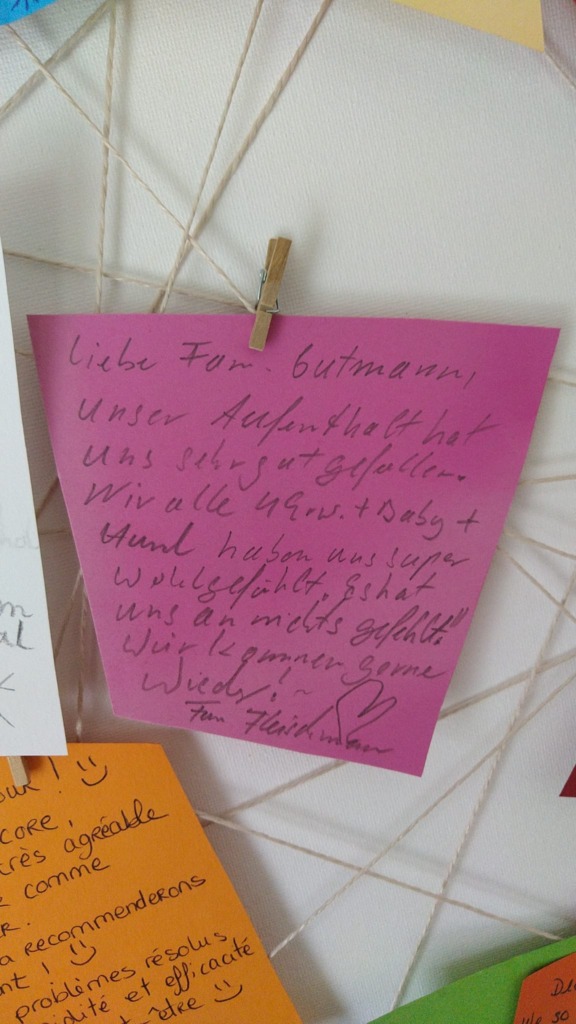 Liebe Fam. Gutmann,
unser Aufenthalt hat
uns sehr gut gefallen.
Wir alle + Baby +
Hund haben uns super
wohlgefühlt. Es hat
uns an nichts gefehlt!!
Wir kommen gerne
wieder! ~
Fam Fleischmann
! :)
CORE,
très agréable
comme
R.
a recommenderons
nt ! :)
problèmes résolus
idité et efficacité
-être :)
De
We so